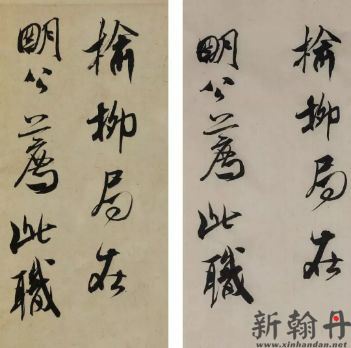 榆柳局在
明公薦此職
榆柳局在
明公薦此職
新翰丹
www.xinhandan.net